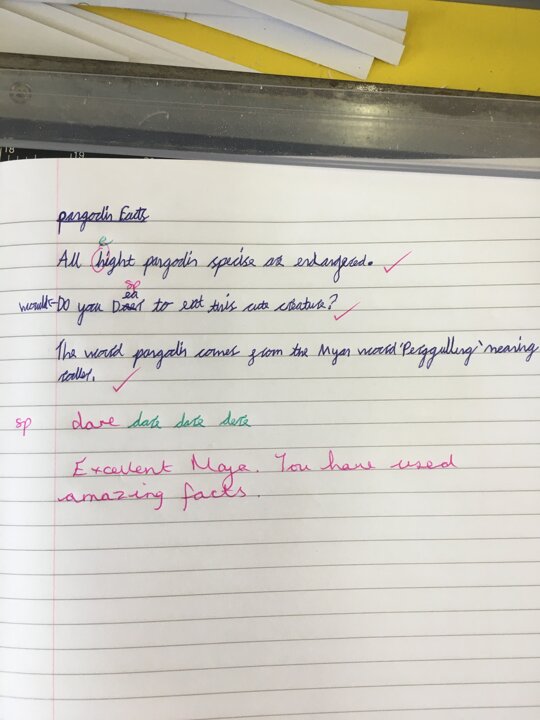 18 19
pangolin Facts
All hight pangolin specise are endangered.
would Do you to eat this cute creature?
The word pangolin comes from the Myan word 'Perggulling' meaning
roller.
sp dare dare dare dare
Excellent Maja. You have used
amazing facts.